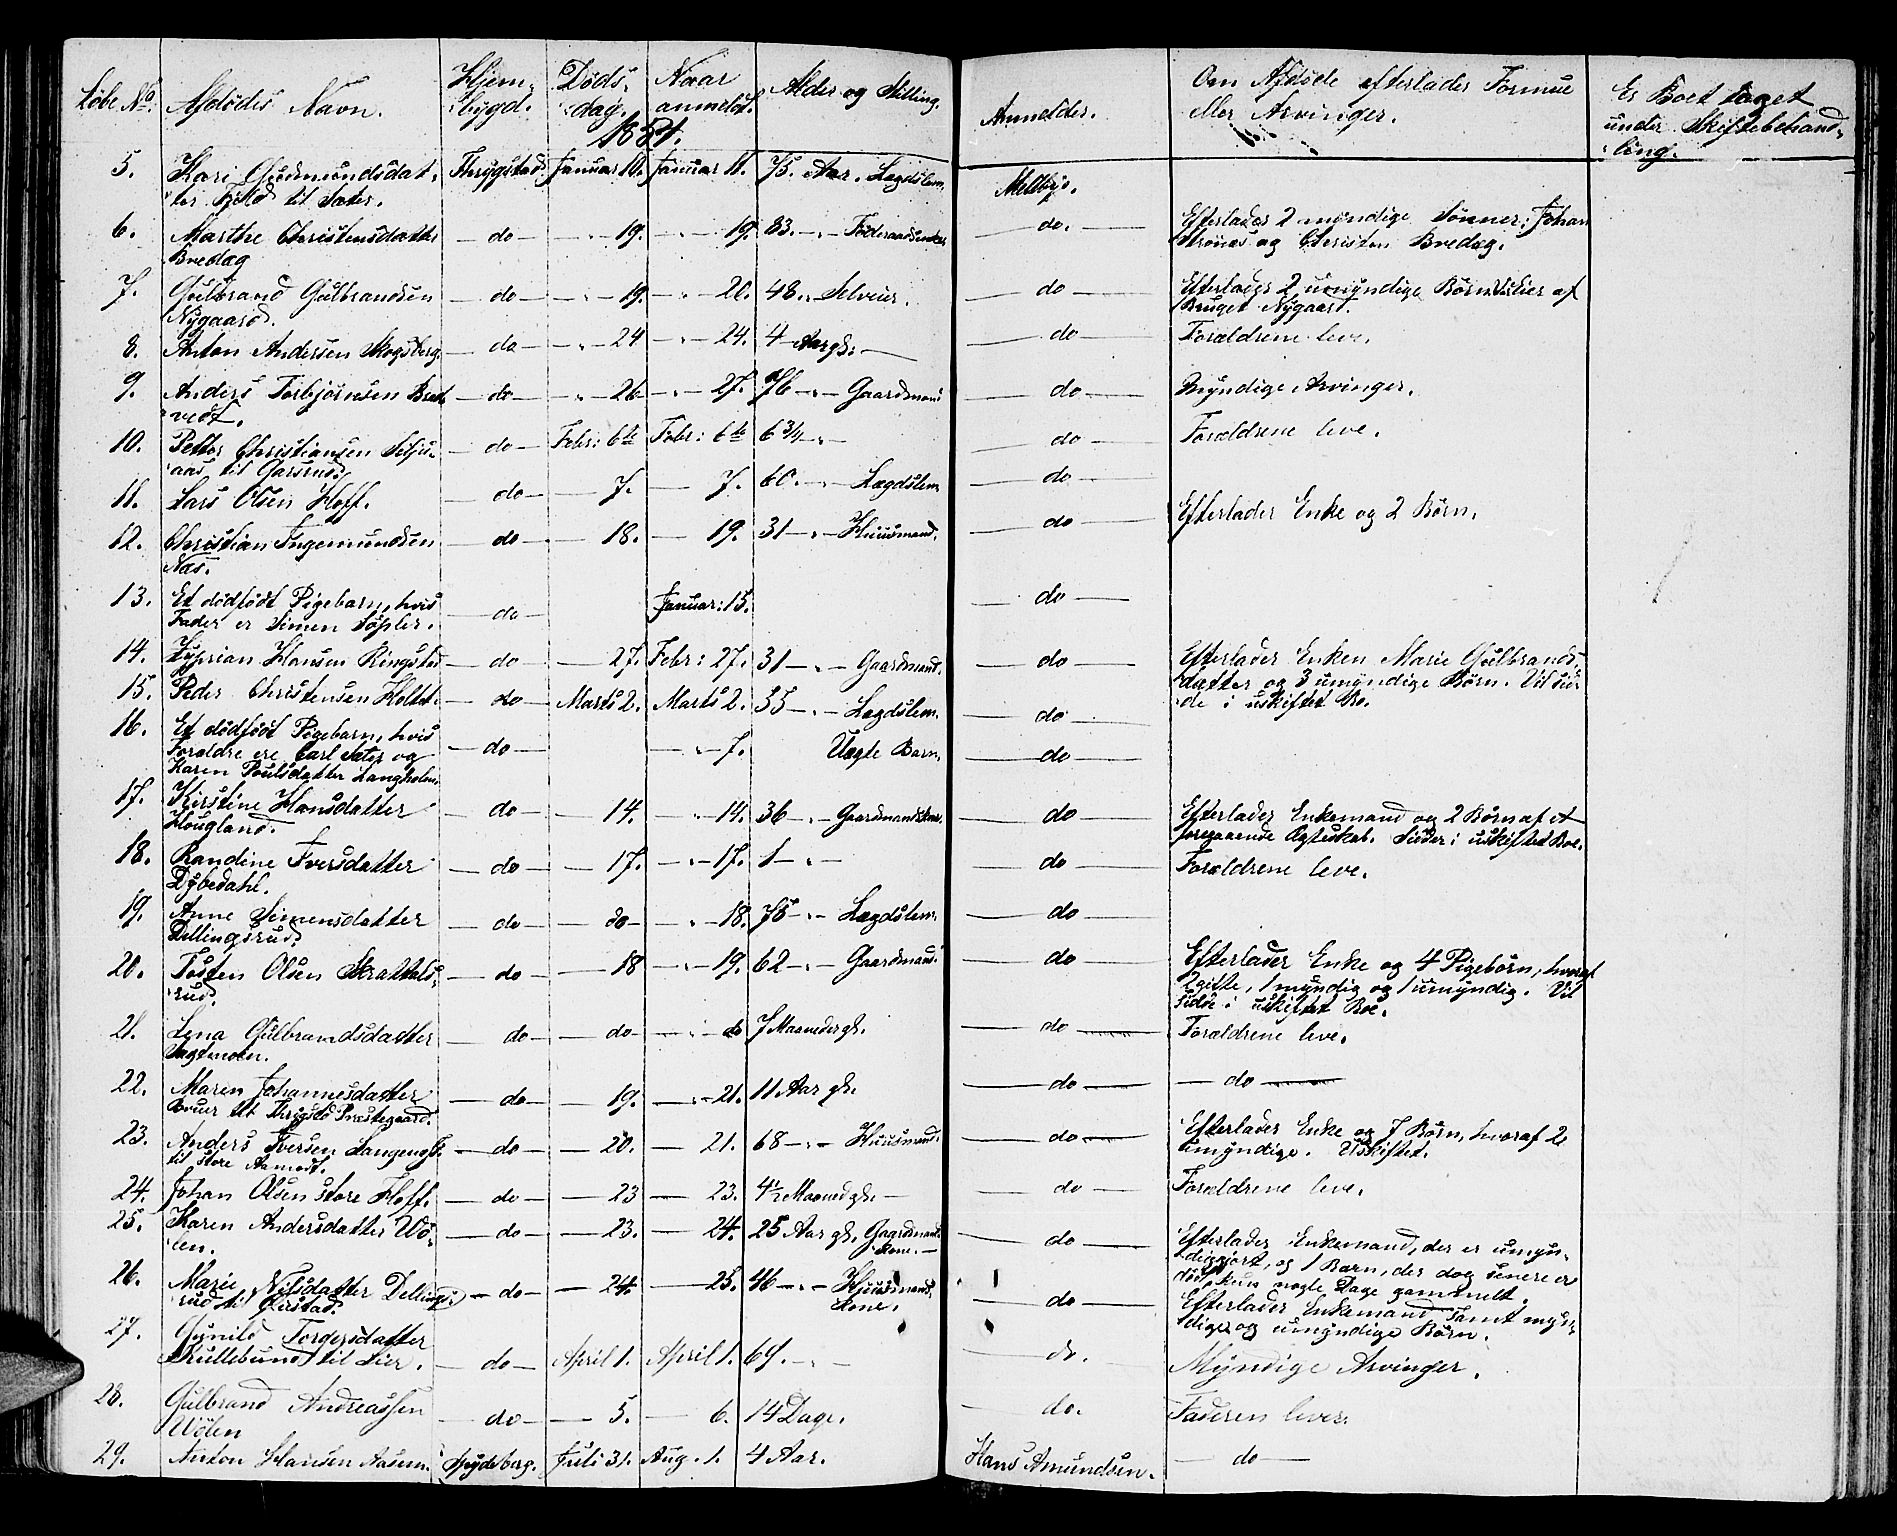 Løbe No. Afdødes Navn. Hjem- Døds- Naar Alder og Stilling. Anmelder. Om Afdøde efterlader Formue Er Boet taget
bygd. dag. anmeldt. eller Arvinger. under Skiftebehand-
ling.
5. Kari Gudmundsdat- Thrygstad. Januar Januar 11. 75. Aar. Lægdslem. Mellbye.
ter til Sæter.
6. Marthe Christensdatter — do — — " 19. — " 19. 83. — " — Føderaadsenke. do. Efterlader 2 myndige Sønner: Johan
Bredæg og Christen Bredæg.
7. Gulbrand Gulbrandsen — do — — " — 19. — " — 20. 48. — " Selveier. — do — Efterlader 2 umyndige Børn. Eier af
Nygaard. Bruget Nygaard.
8. Anton Andersen Skogsberg. — do — — " — 24 — " — 24. 4 — Aar gl. — — do — Forældrene leve.
9. Anders Torbjørnsen Bræk- — do — " — 26 — " — 27. 76 — " — Gaardmand — do — Myndige Arvinger.
vedt.
10. Petter Christiansen — do — Febr: 6te Febr: 6te 6 3/4 — " — — do — Forældrene leve.
aas til
11. Lars Olsen Hoff. — do — — 7. — 7. 60. — " — Lægdslem. — do —
12. Christian Ingemundsen — do — — 18. — 19. 31 — " — Huusmand. — do — Efterlader Enke og 2 Børn.
Næs.
13. Et dødfødt Pigebarn, hvis — do — Januar: 15. — do —
Fader er Simen
14. Zyprian Hansen Ringstad — do — — 27. Febr: 27. 31 — " — Gaardmand. — do — Efterlader Enken Marie Gulbrands-
datter og 3 umyndige Børn. Vil sid-
de i uskiftet Bo.
15. Peder Christensen Holtet. — do — Marts 2. Marts 2. 55 — " — Lægdslem. — do —
16. Et dødfødt Pigebarn, hvis — do — — " — 7. Uægte Barn. — do —
Forældre ere Carl Sæter og
Karen Poulsdatter Langholm.
17. Kirstine Hansdatter — do — — 14. — " — 14. 36 — " — Gaardmandskone. — do — Efterlader Enkemand og 2 Børn af et
Hougland. foregaaende Ægteskab. Sidder i uskiftet Boe.
18. Randine Iversdatter — do — — 17. — " — 17. 1 — " — — do — Forældrene leve.
Dybedahl.
19. Anne Simensdatter — do — — do — — " — 18. 75 — " — Lægdslem. — do —
Dellingsrud.
20. Tosten Olsen Skrattels- — do — — 18 — " — 19. 62 — " — Gaardmand. — do — Efterlader Enke og 4 Pigebørn, hvoraf
rud. 2 gifte, 1 myndig og 1 umyndig. Vil
sidde i uskiftet Boe.
21. Lena Gulbrandsdatter — do — — do — — " — do 7 Maaneder gl. — do — Forældrene leve.
22. Maren Johannesdatter — do — — 19. — " — 21. 11 Aar gl. — do — — do —
til Thrygstad Præstegaard.
23. Anders Iversen — do — — 20. — 21. 68 — " — Huusmand. — do — Efterlader Enke og 7 Børn, hvoraf 2
til store Aamodt. umyndige. Uskiftet.
24. Johan Olsen store Hoff. — do — — 23 — 23. 4 1/2 Maaned gl. — — do — Forældrene leve.
25. Karen Andersdatter Wø- — do — — 23. — 24. 25 Aar gl. Gaardmands — do — Efterlader Enkemand, der er umyn-
len. kone. — diggjort, og 1 Barn, der dog senere er
død kun nogle Dage gammelt.
26. Marie Nilsdatter Dellings- — do — — 24 — 25. 46 — " — Huusmands — do — Efterlader Enkemand samt myn-
rud til Gjerstad. kone. dige og umyndige Børn.
27. Gunild Torgersdatter — do — April 1. April 1. 69. — " — do. Myndige Arvinger.
Kullebund til Lier.
28. Gulbrand Andreassen — do — — 5. — 6. 14 Dage. — do. Faderen lever.
Wølen
29. Anton Hansen Aasem. Spydeberg. Juli 31. Aug. 1. 4 Aar. Hans Amundsen. — do —